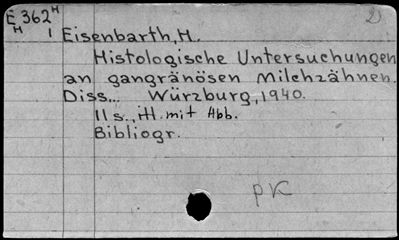 E 362 H 2)
H 1 Eisenbarth, H.
Histologische Untersuchungen
an gangränösen Milchzähnen.
Diss... Würzburg, 1940.
11 s., Ill. mit Abb.
Bibliogr.
pK